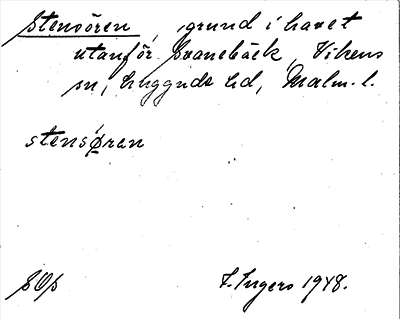 Stensören, grund i havet
utanför Svanebäck, Vikens
sn, Luggude hd, Malm. l.
stensøren
SOp
I. Ingers 1948.